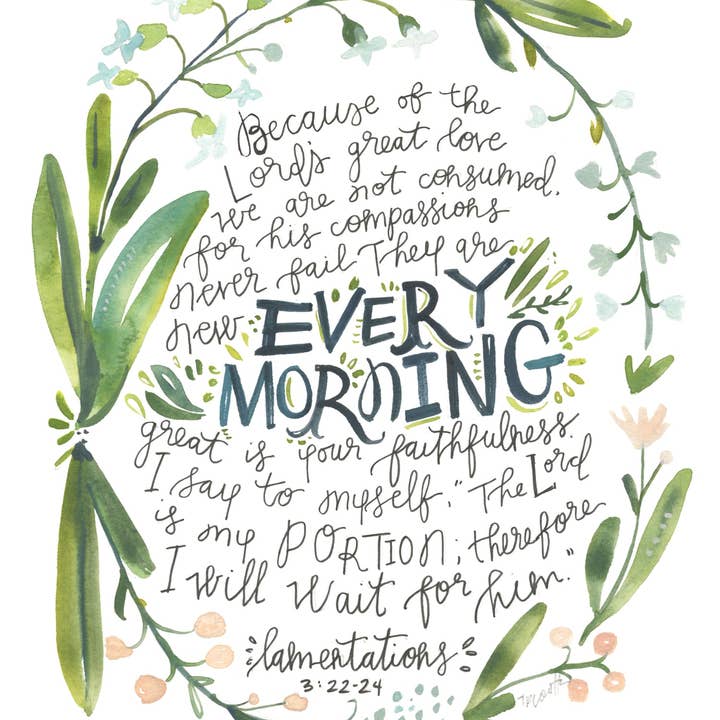 Because of the
Lord's great love
we are not consumed,
for his compassions
never fail They are
new EVERY
MORNING
great is your faithfulness
I say to myself; "The Lord
is my PORTION; therefore
I will wait for him."
lamentations
3:22-24